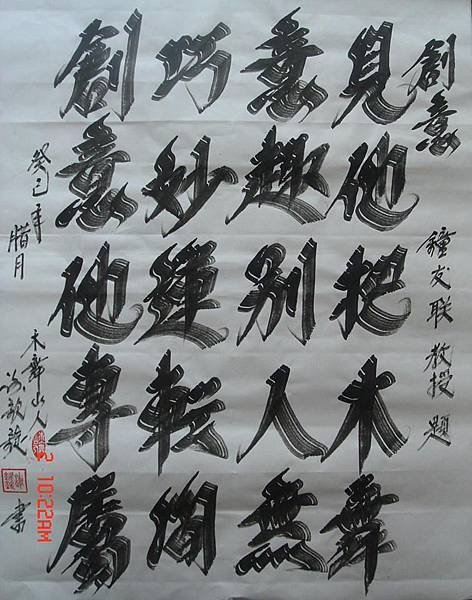 創意 鐘友联教授題
見他把木舞
意趣別人無
巧妙運転間
創意他專屬
癸巳年腊月
木舞山人 書
10:22AM